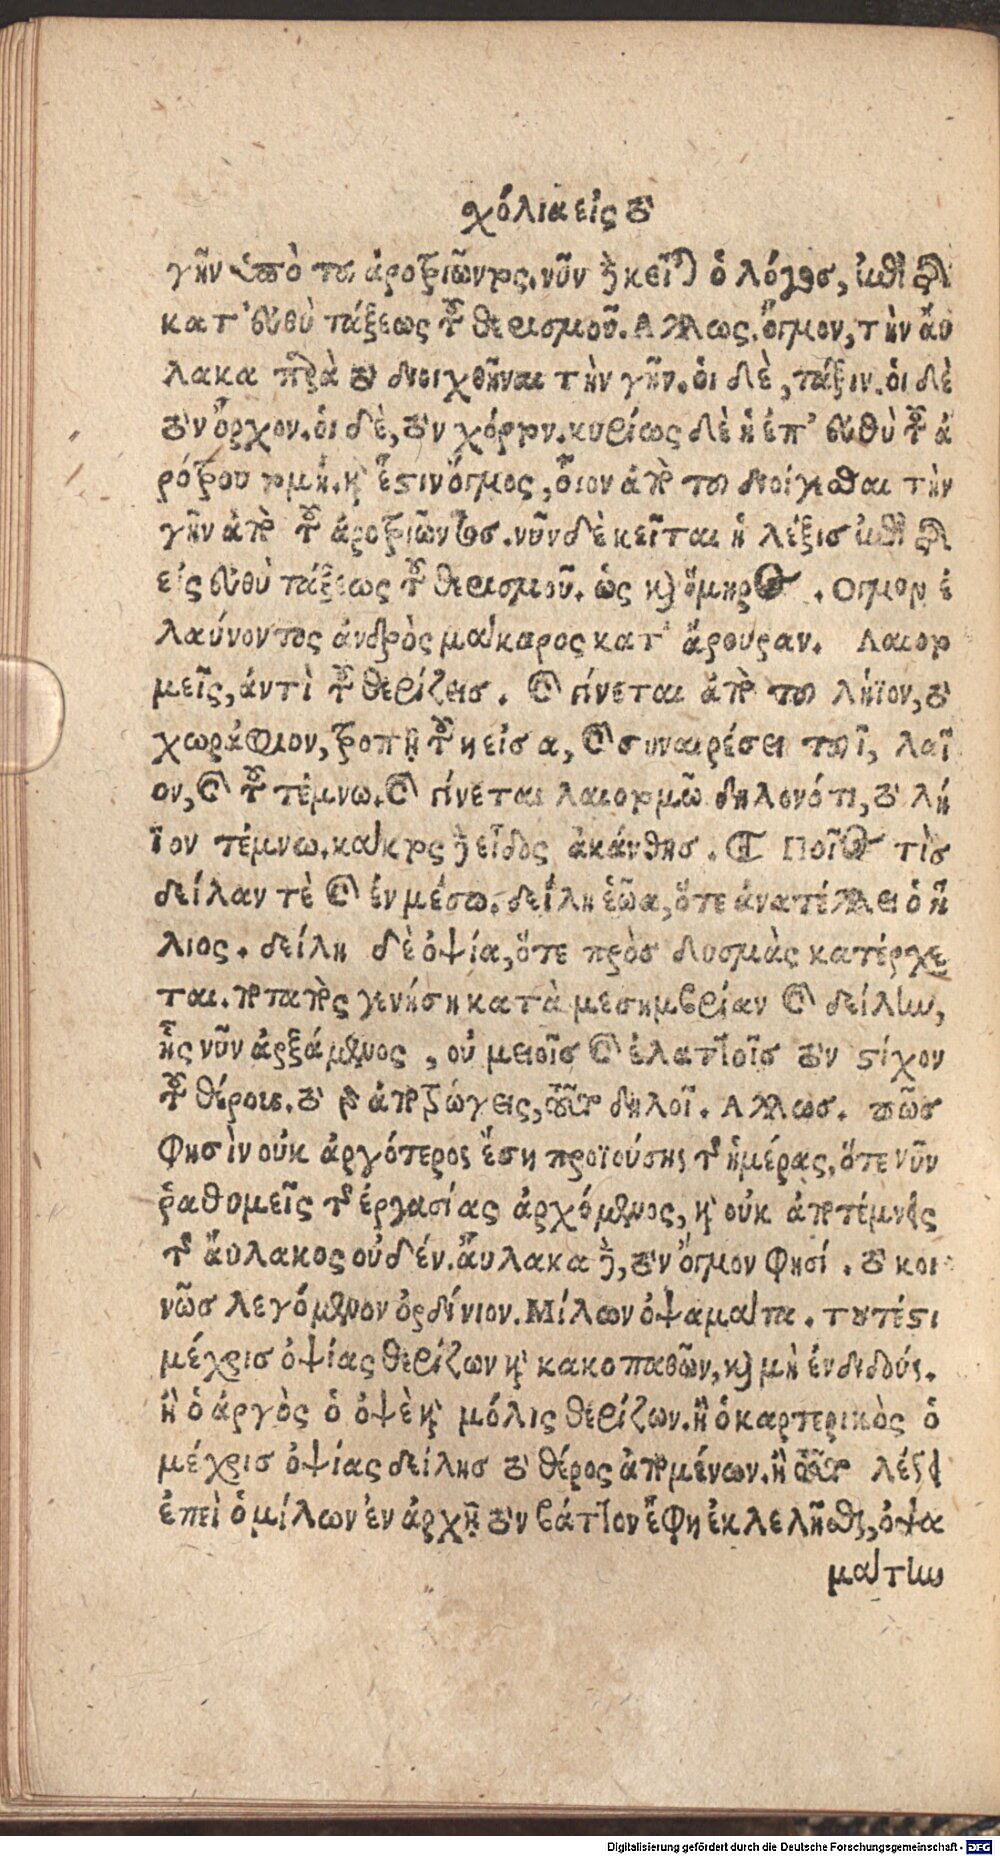 χόλια εἰς τὸ
γῆν ὑπὸ τῶν ἀροτριῶντος. νῦν δὲ κεῖται ὁ λόγος, ἐπὶ τῆς
κατ' εὐθὺ τάξεως τοῦ θερισμοῦ. Αλλως. ὄγμον, τὴν αὔ
λακα παρὰ τὸ ἀνοιχθῆναι τὴν γῆν. οἱ δὲ, τάξιν. οἱ δὲ
τὸν ὄρχον. οἱ δὲ, τὸν χόρτον. κυρίως δὲ ἡ ἐπ' εὐθὺ τοῦ ἀ
ρότρου τομή. καὶ ἔστιν ὄγμος, οἷον ἀπὸ τοῦ ἀνοίγεσθαι τὴν
γῆν ἀπὸ τοῦ ἀροτριῶντος. νῦν δὲ κεῖται ἡ λέξις ἐπὶ τῆς
εἰς εὐθὺ τάξεως τοῦ θερισμοῦ. ὡς καὶ ὅμηρος. Ογμον ἐ
λαύνοντος ἀνδρὸς μάκαρος κατ' ἄρουραν. Λαιοτο
μεῖς, ἀντὶ τοῦ θερίζεις. καὶ γίνεται ἀπὸ τοῦ λήϊον, τὸ
χωράφιον, τροπῇ τοῦ η εἰς α, καὶ συναιρέσει τοῦ ϊ, λαῖ
ον, καὶ τοῦ τέμνω. καὶ γίνεται λαιοτομῶ δηλονότι, τὸ λή
ϊον τέμνω. κάκτος δὲ εἶδος ἀκάνθης. Ποῖός τις
δείλαν τὲ καὶ ἐν μέσω. δείλη ἑῶα, ὅτε ἀνατέλλει ὁ ἥ
λιος. δείλη δὲ ὀψία, ὅτε πρὸς δυσμὰς κατέρχε
ται. ποταπὸς γενήση κατὰ μεσημβρίαν καὶ δείλην,
ἧς νῦν ἀρξάμενος, οὐ μειοῖς καὶ ἐλαττοῖς τὸν στίχον
τοῦ θέρους. τὸ γὰρ ἀποτρώγεις, τοῦτο δηλοῖ. Αλλως. πῶς
φησὶν οὐκ ἀργότερος ἔση προϊούσης τῆς ἡμέρας, ὅτε νῦν
ῥαθυμεῖς τῆς ἐργασίας ἀρχόμενος, καὶ οὐκ ἀποτέμνεις
τῆς αὔλακος οὐδέν. αὔλακα δὲ, τὸν ὄγμον φησί. τὸ κοι
νῶς λεγόμενον ὀρδίνιον. Μίλων ὀψαμάτα. τουτέστι
μέχρις ὀψίας θερίζων καὶ κακοπαθῶν, καὶ μὴ ἐνδιδούς.
ἢ ὁ ἀργὸς ὁ ὀψὲ καὶ μόλις θερίζων. ἢ ὁ καρτερικὸς ὁ
μέχρις ὀψίας δείλης τὸ θέρος ἀπομένων. ἢ τοῦτο λέγει
ἐπεὶ ὁ μίλων ἐν ἀρχῇ τὸν βάττον ἔφη ἐκλελῆσθαι, ὀψα
μάτην